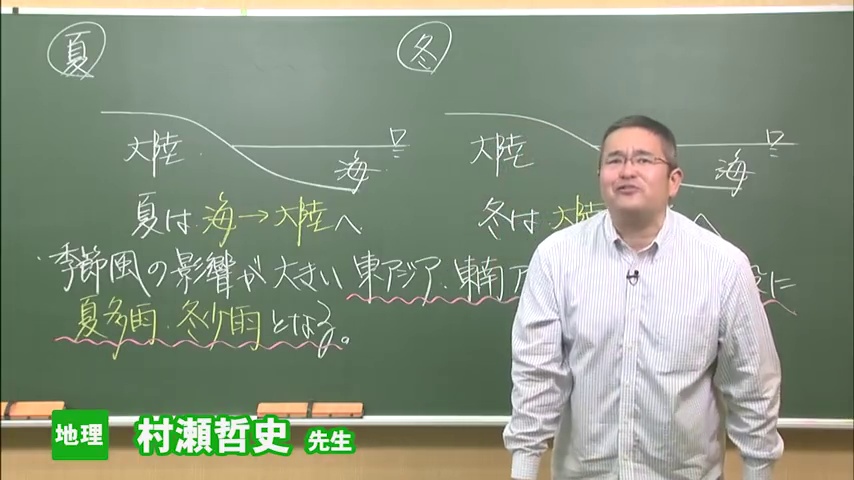 夏
大陸
海
夏は 海→大陸へ
冬
大陸
海
冬は 大陸 へ
季節風の影響が大きい東アジア.東南ア に
夏多雨.冬少雨となる。
地理 村瀬哲史 先生